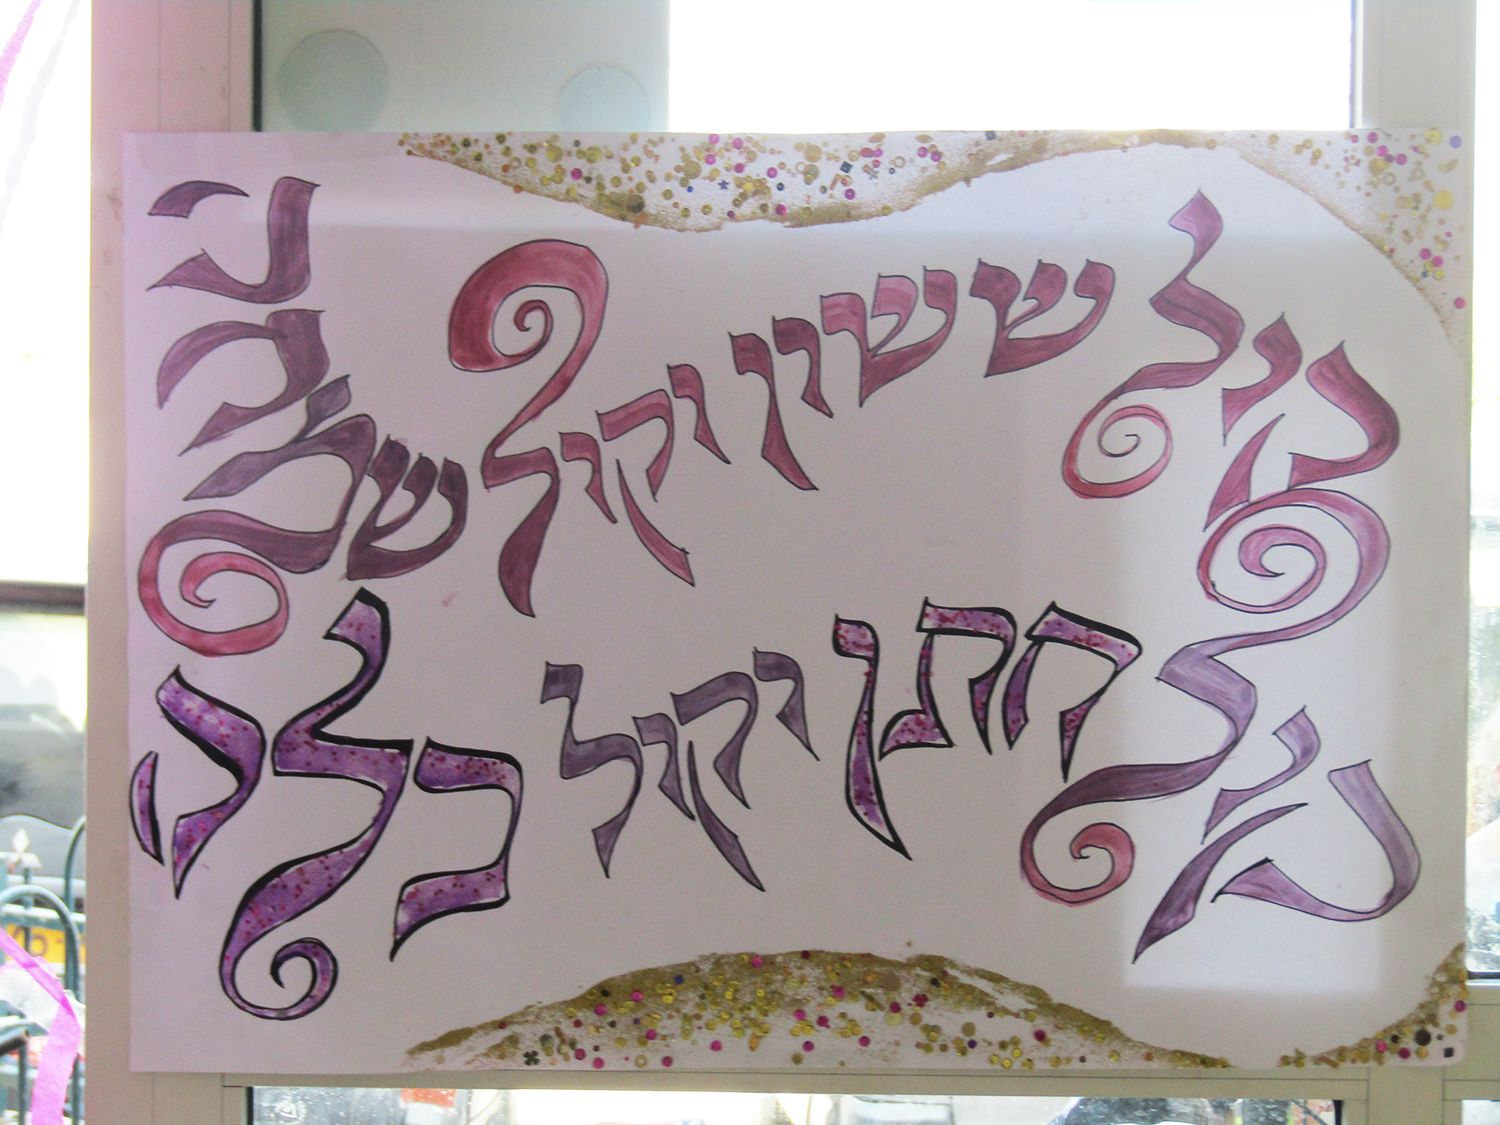 קול ששון וקול שמחה
קול חתן וקול כלה